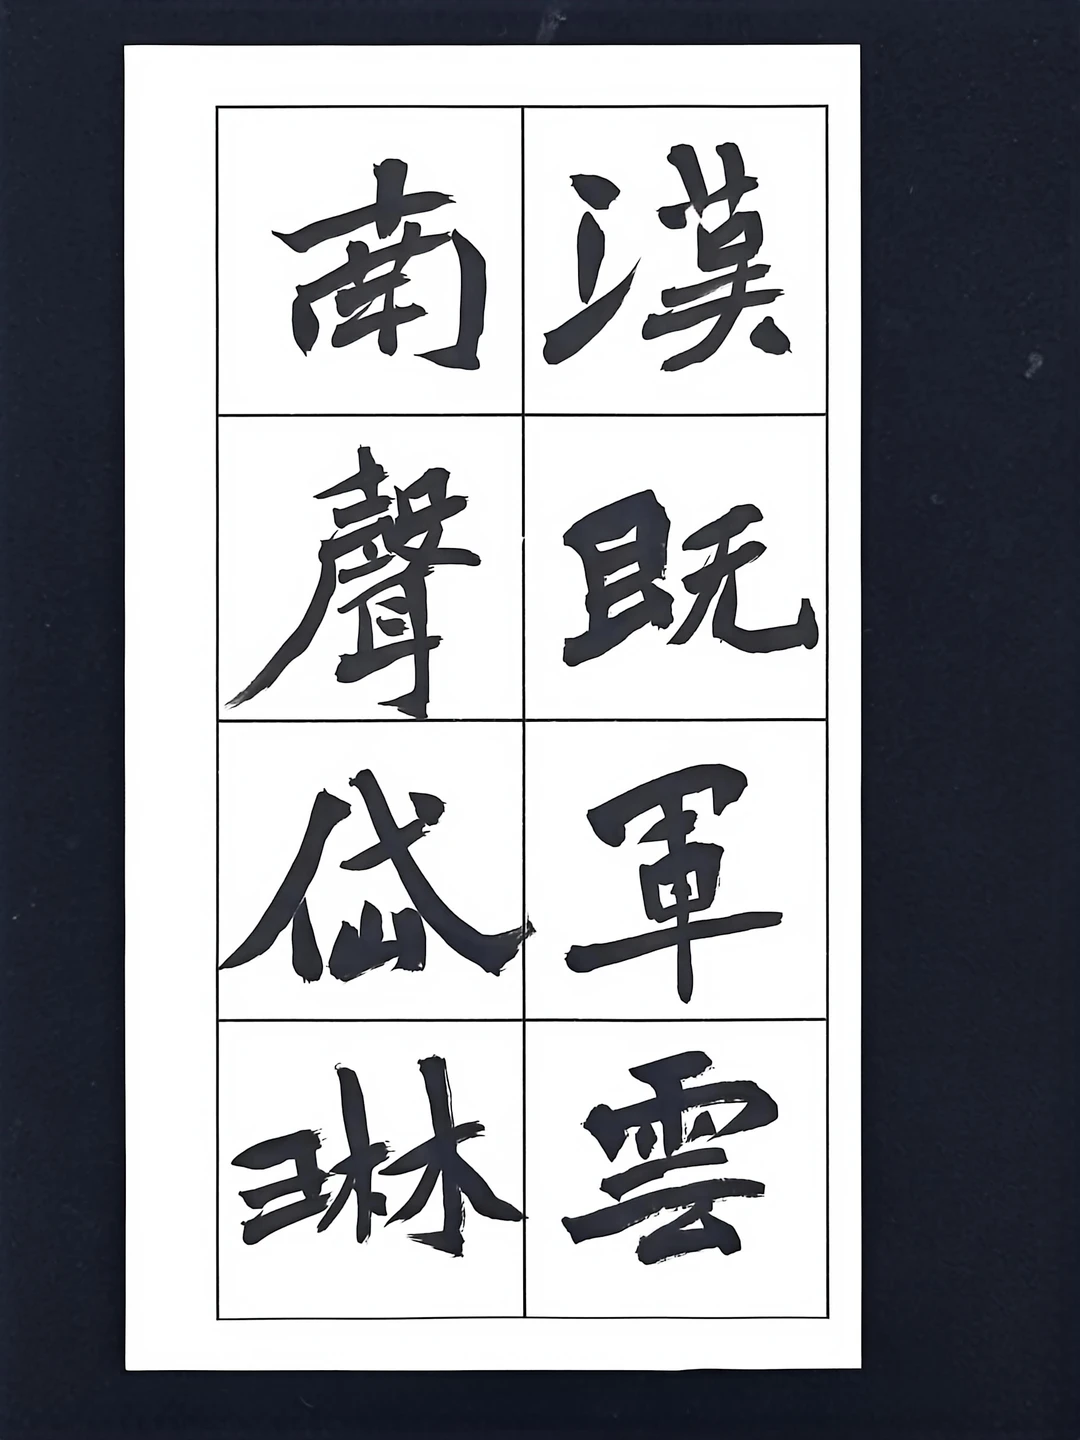 漢既軍雲
南聲岱琳